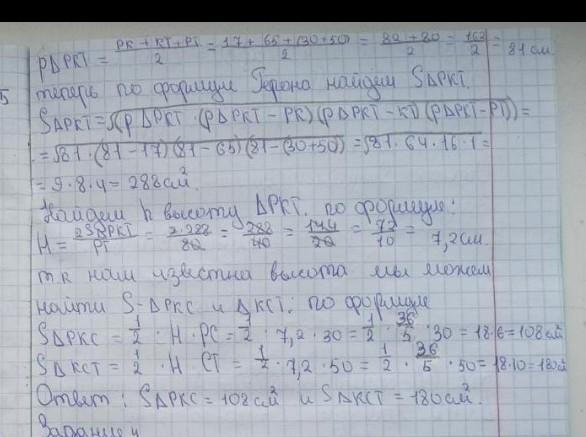 pΔPKT = (PK + KT + PT)/2 = (17 + 65 + (30+50))/2 = (82 + 80)/2 = 162/2 = 81 см
5
теперь по формуле Герона найдем SΔPKT.
SΔPKT = √(pΔPKT · (pΔPKT − PK)(pΔPKT − KT)(pΔPKT − PT)) =
= √81 · (81 − 17)(81 − 65)(81 − (30+50)) = √81 · 64 · 16 · 1 =
= 9 · 8 · 4 = 288 см².
Найдем h высоту ΔPKT. по формуле:
H = 2SΔPKT/PT = 2·288/80 = 288/40 = 144/20 = 72/10 = 7,2 см.
т.к нам известна высота мы можем
найти S - ΔPKC и ΔKCT. по формуле
SΔPKC = 1/2 · H · PC = 1/2 · 7,2 · 30 = 1/2 · 36/5 · 30 = 18·6 = 108 см²
SΔKCT = 1/2 · H · CT = 1/2 · 7,2 · 50 = 1/2 · 36/5 · 50 = 18·10 = 180 см²
Ответ: SΔPKC = 108 см² и SΔKCT = 180 см².
Задание 4